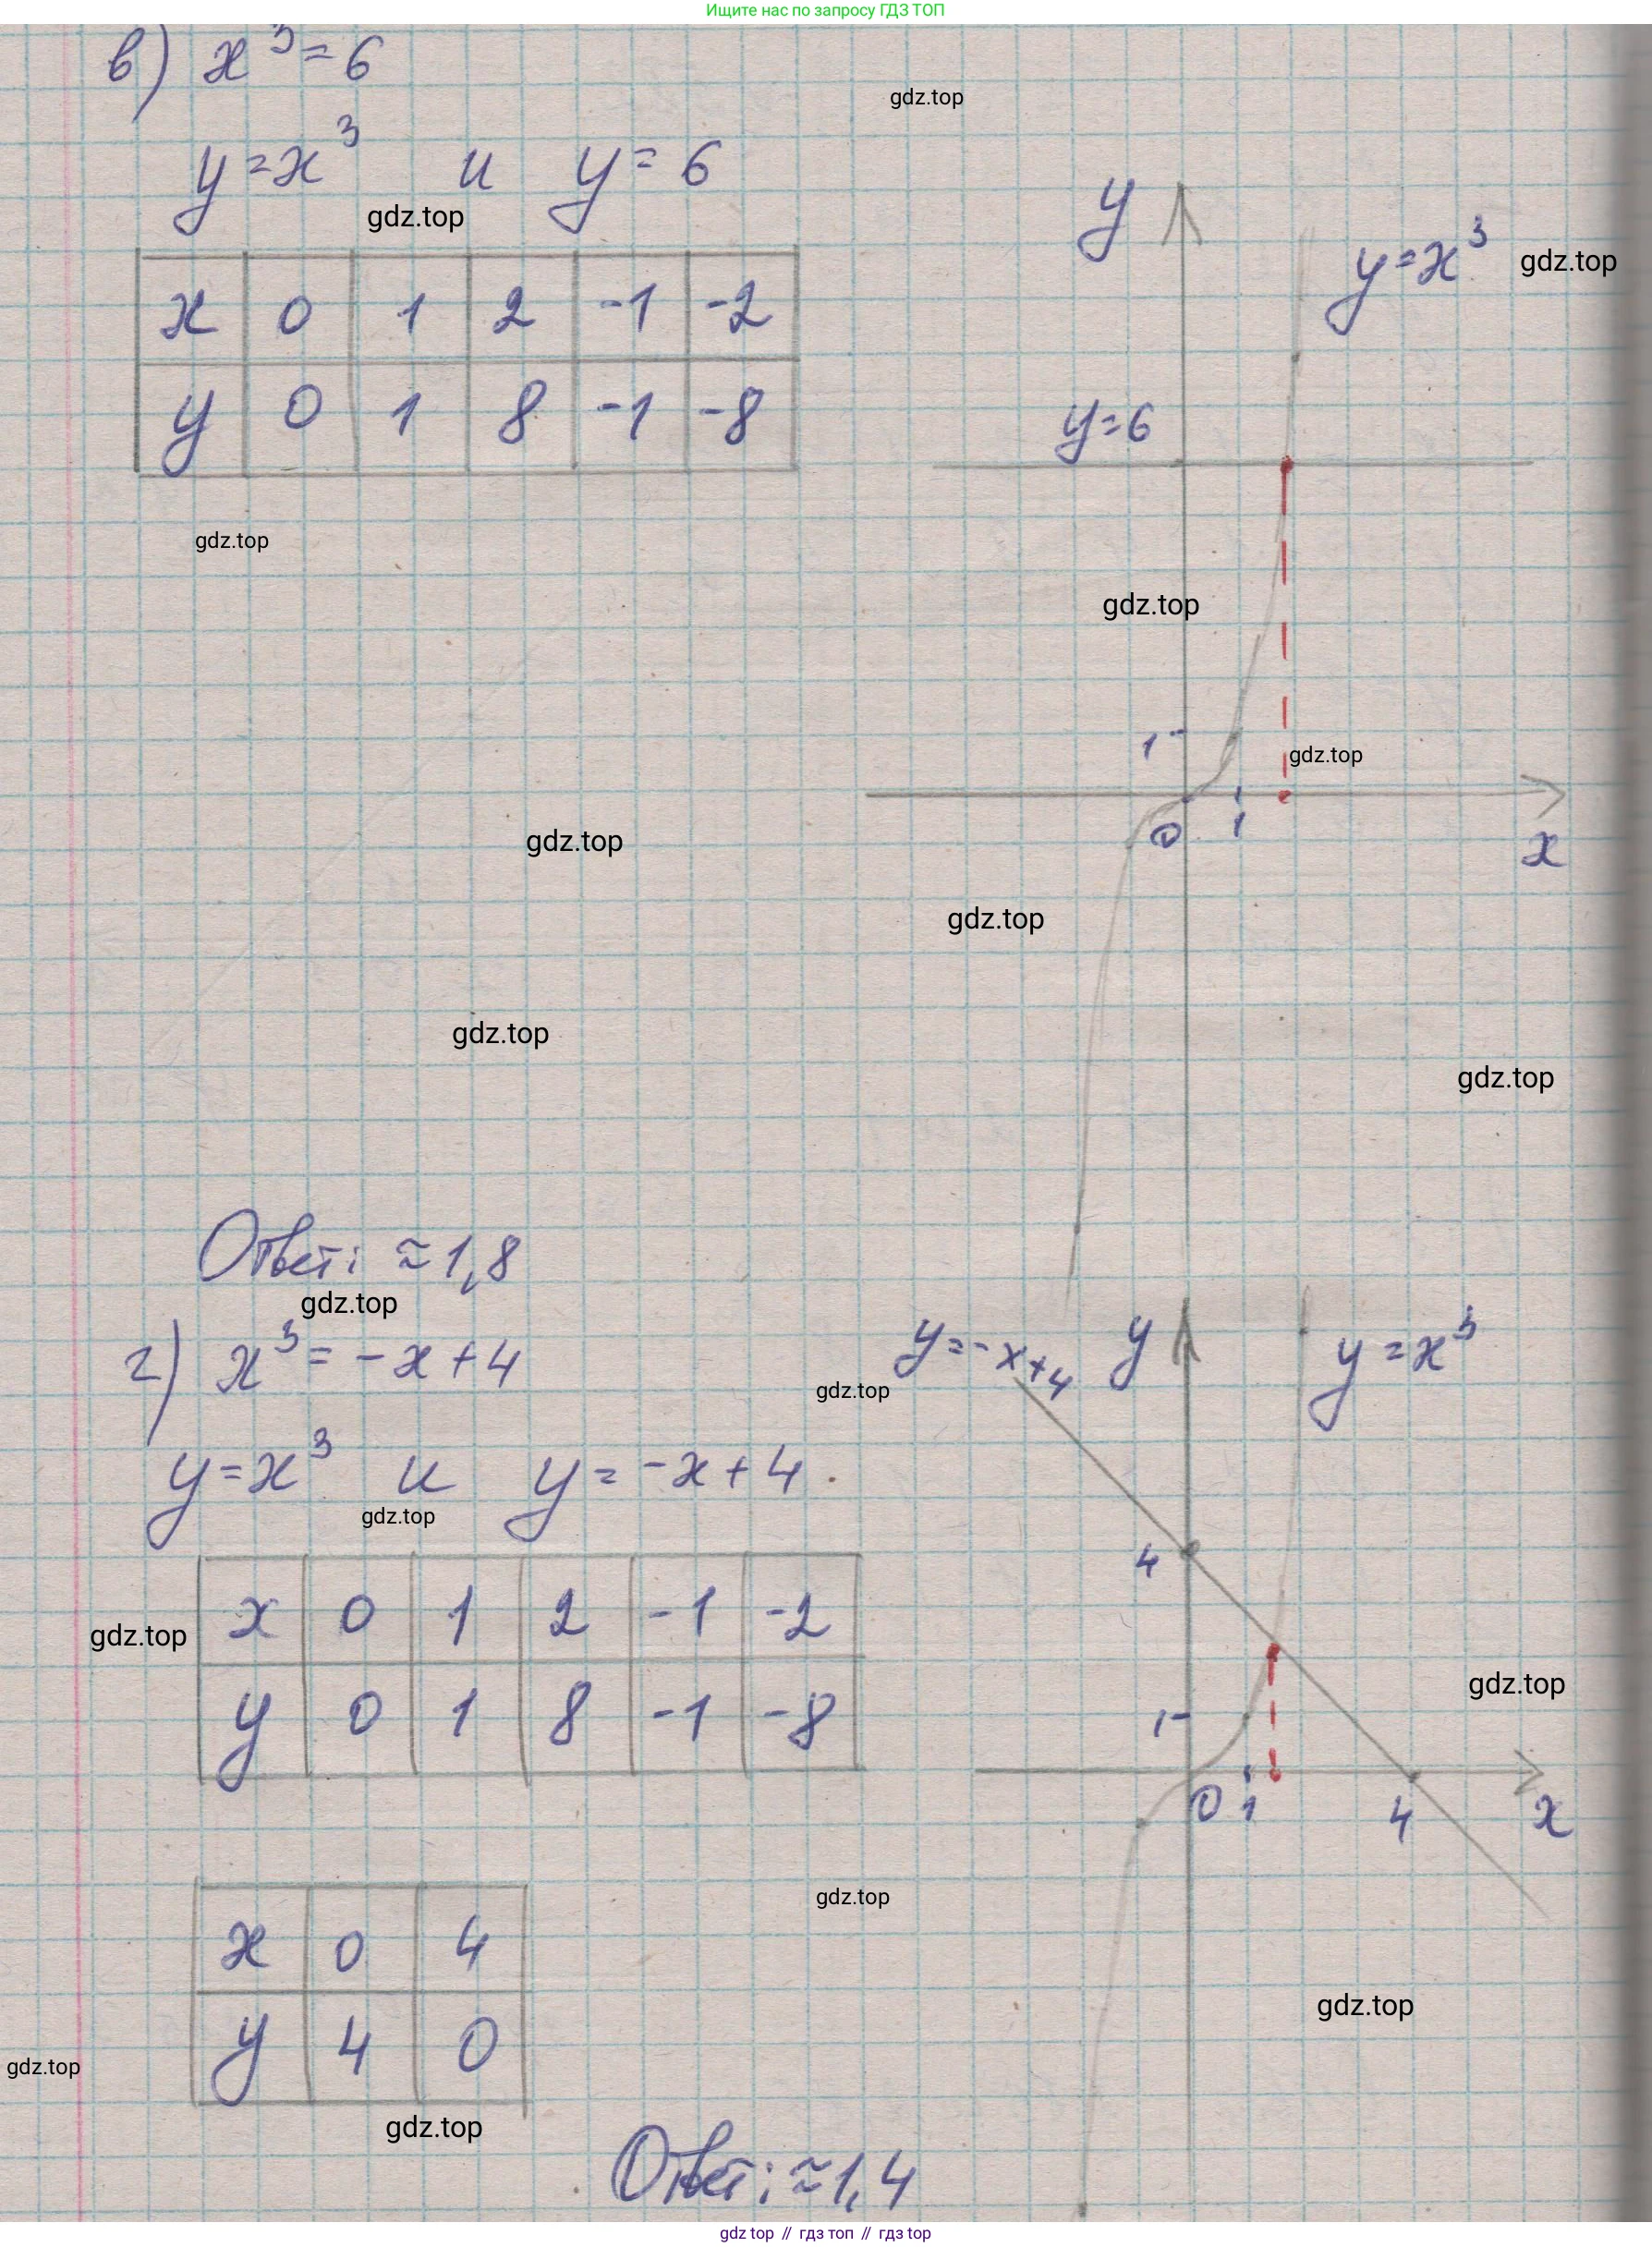 Ищите нас по запросу ГДЗ ТОП
в) x³ = 6
gdz.top
y = x³ и y = 6
gdz.top
x 0 1 2 -1 -2
y 0 1 8 -1 -8
y
y = x³
gdz.top
y = 6
gdz.top
gdz.top
1
gdz.top
0 1
x
gdz.top
gdz.top
gdz.top
gdz.top
Ответ: ≈ 1,8
gdz.top
г) x³ = -x + 4
gdz.top
y = -x + 4
y
y = x³
y = x³ и y = -x + 4.
gdz.top
4
x 0 1 2 -1 -2
gdz.top
y 0 1 8 -1 -8
gdz.top
1
0 1 4 x
gdz.top
x 0 4
y 4 0
gdz.top
gdz.top
gdz.top
Ответ: ≈ 1,4
gdz top // гдз топ // гдз top